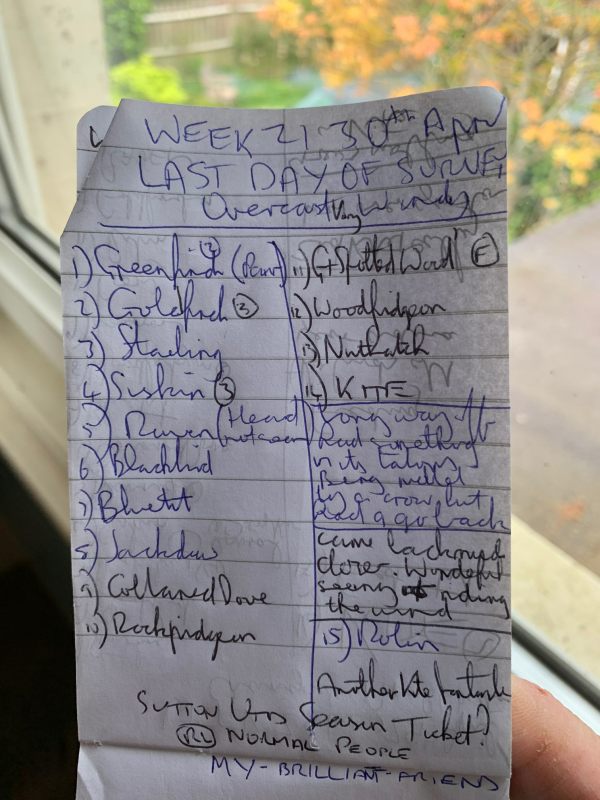 WEEK 21 30th Apr
LAST DAY OF SURVEY
Overcast Very Windy
1) Greenfinch (Pair)
2) Goldfinch (3)
3) Starling
4) Siskin (3)
5) Raven (Heard not seen)
6) Blackbird
7) Bluetit
8) Jackdaw
9) Collared Dove
10) Rockpidgeon
11) Gt Spotted Wood (F)
12) Woodpidgeon
13) Nuthatch
14) KITE
Long way off
had something
in its talons
Being
by a crow but
had a go back
came back round
closer. Wonderful
seeing it riding
the wind
15) Robin
Another Kite fantastic
SUTTON UTD SEASON TICKET?
NORMAL PEOPLE
MY-BRILLIANT-FRIEND